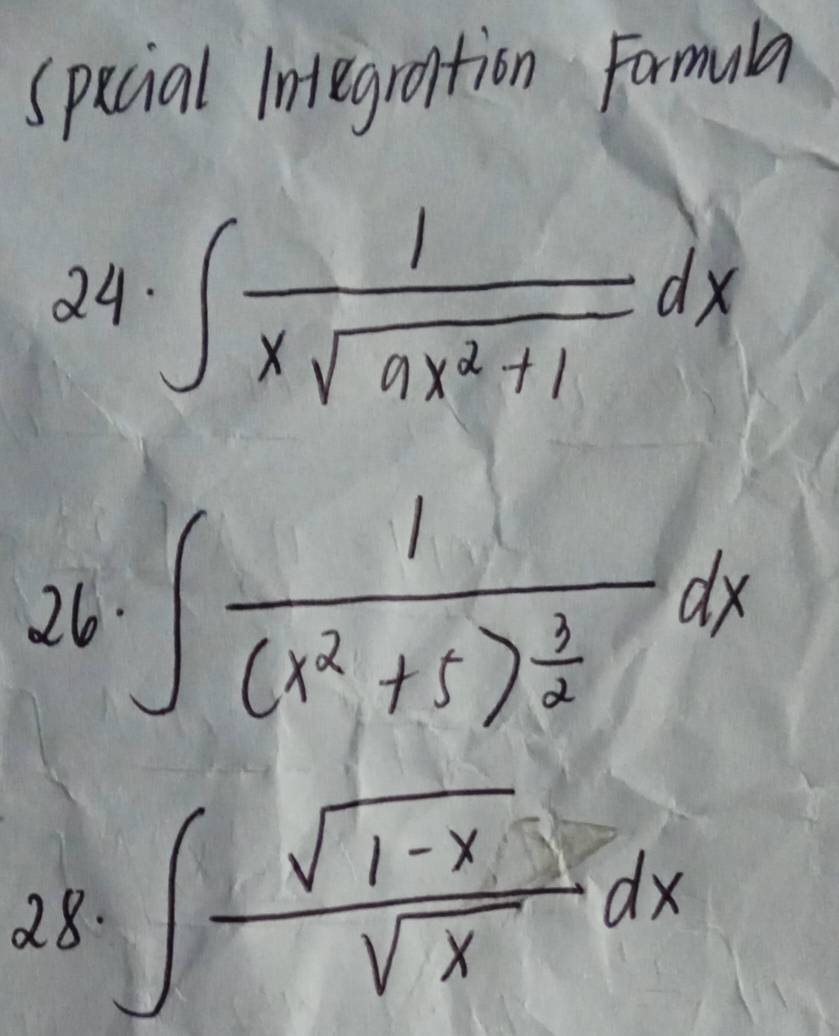 Special Integration Formula
24. ∫ 1 / (x √(9x² + 1)) dx
26. ∫ 1 / (x² + 5)^(3/2) dx
28. ∫ √(1 - x) / √x dx